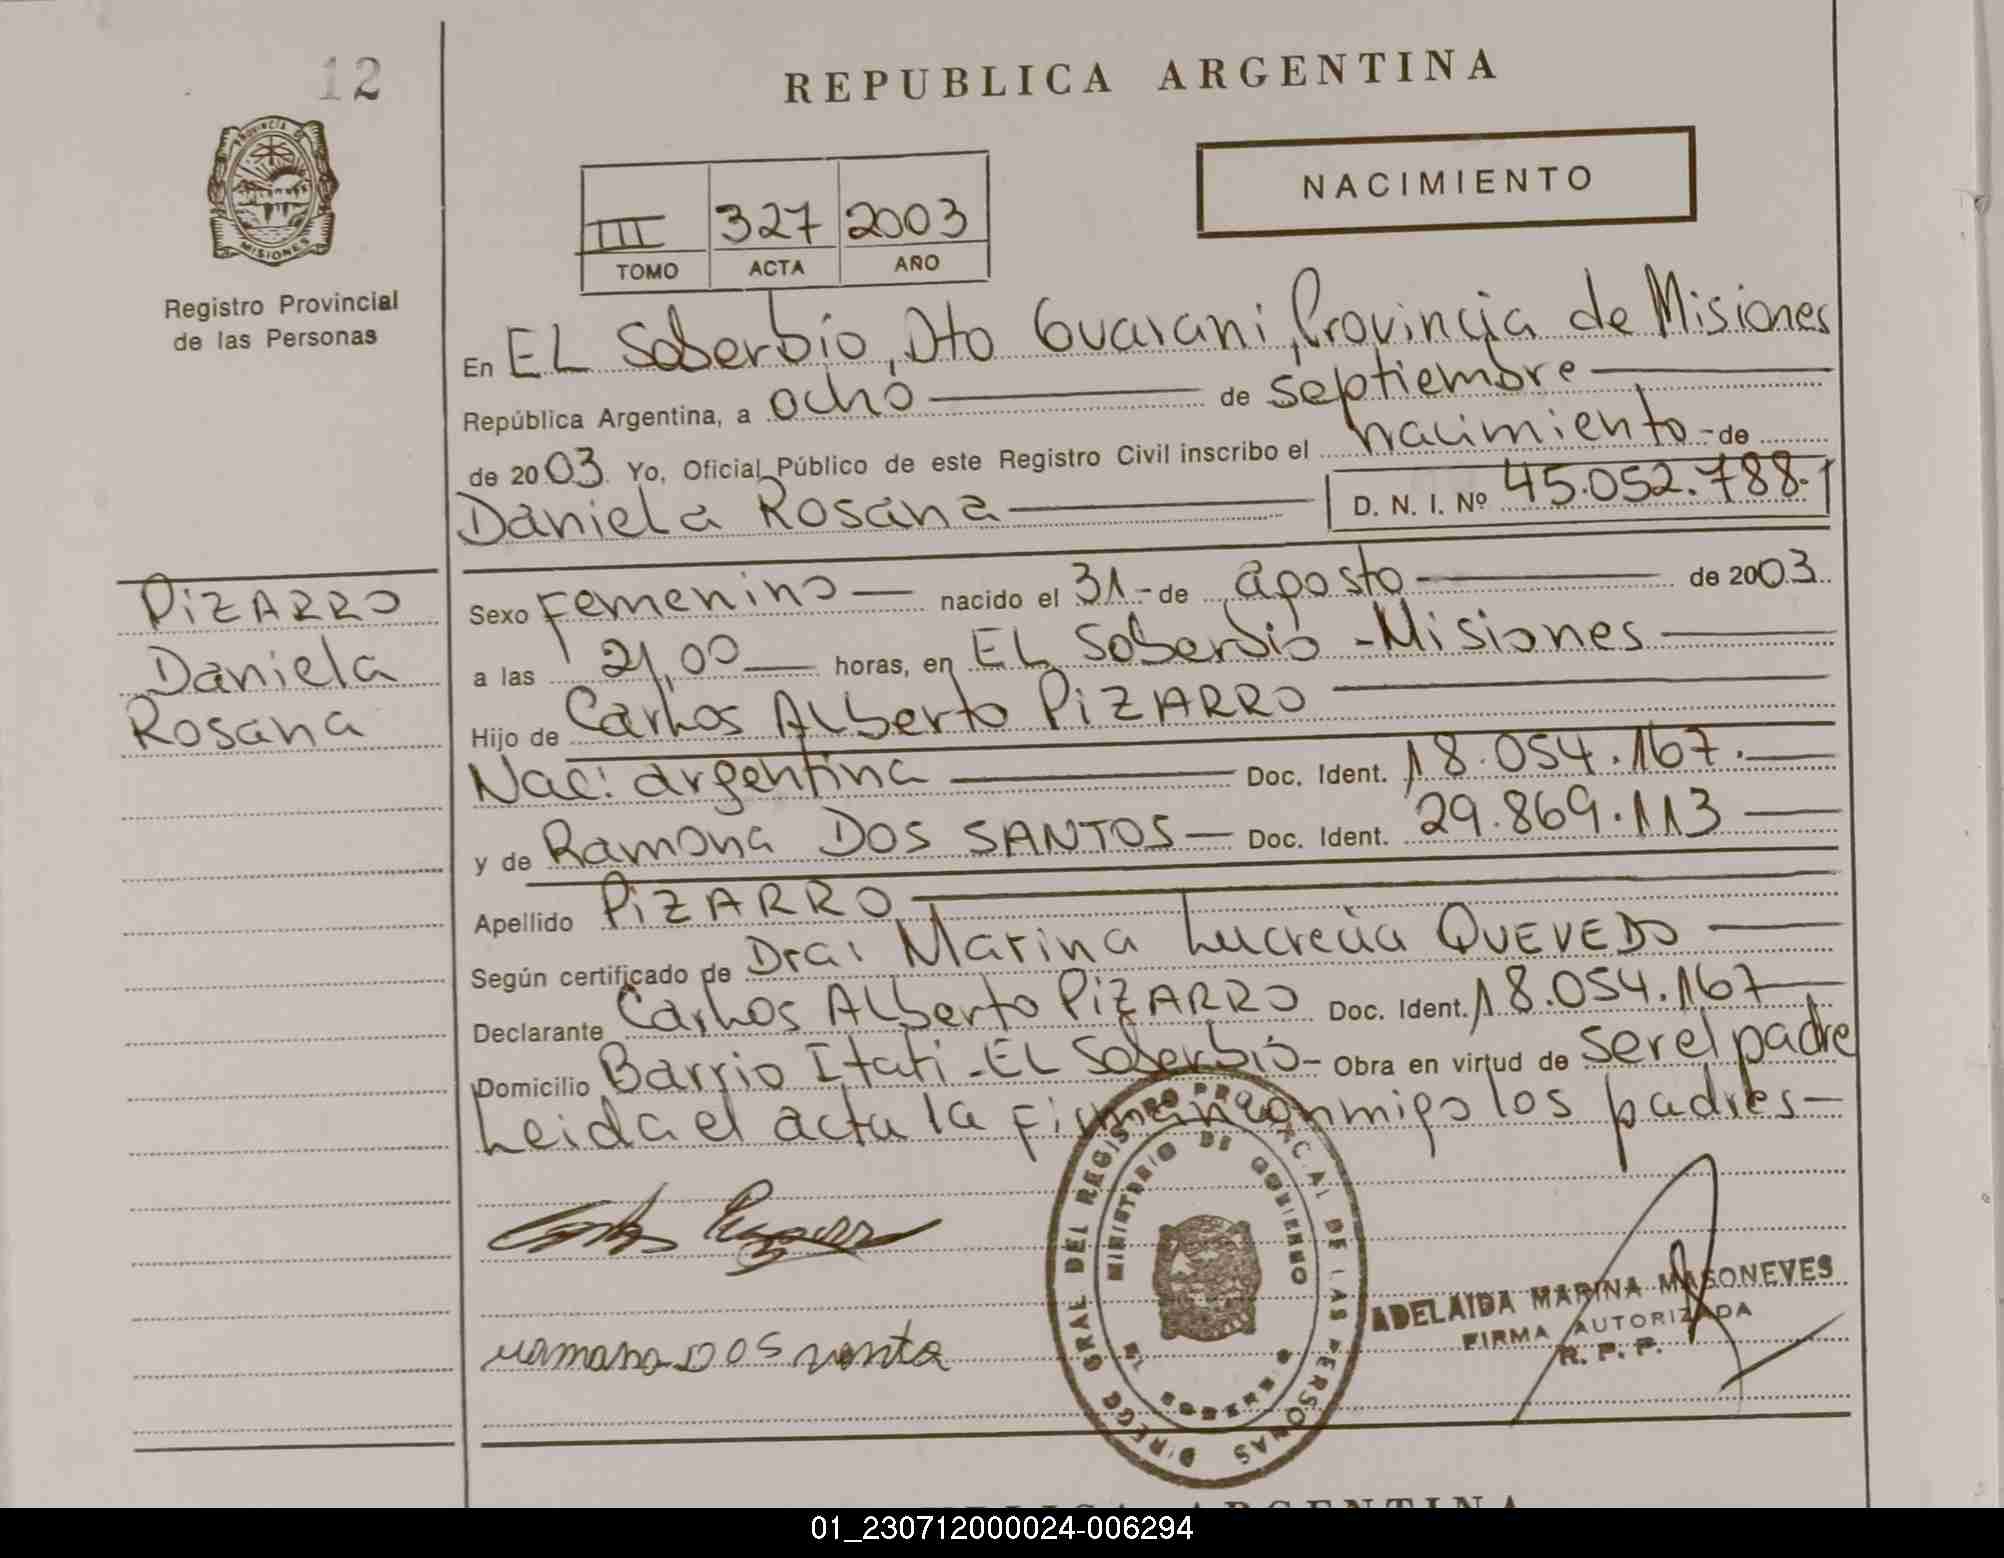 12
REPUBLICA ARGENTINA
PROVINCIA DE
MISIONES
Registro Provincial
de las Personas
NACIMIENTO
III 327 2003
TOMO ACTA AÑO
En EL Soberbio, Dto Guarani, Provincia de Misiones
República Argentina, a ocho de septiembre
de 2003. Yo, Oficial Público de este Registro Civil inscribo el nacimiento - de
Daniela Rosana D. N. I. Nº 45.052.788.
PIZARRO
Daniela
Rosana
Sexo Femenino nacido el 31 - de agosto de 2003.
a las 21,00 horas, en EL Soberbio - Misiones
Hijo de Carlos Alberto PIZARRO
Nac: argentina Doc. Ident. 18.054.167.
y de Ramona DOS SANTOS Doc. Ident. 29.869.113
Apellido PIZARRO
Según certificado de Dra: Marina Lucrecia QUEVEDO
Declarante Carlos Alberto PIZARRO Doc. Ident. 18.054.167
Domicilio Barrio Itati - EL Soberbio - Obra en virtud de ser el padre
Leida el acta la firman conmigo los padres -
DIRECC GRAL DEL REGISTRO PROVINCIAL DE LAS PERSONAS
MINISTERIO DE GOBIERNO
ADELAIDA MARINA MASONEVES
FIRMA AUTORIZADA
R. P. P.
REPUBLICA ARGENTINA
01_230712000024-006294